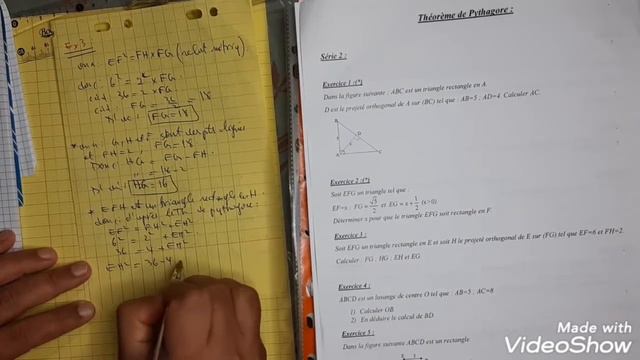 Ex 3
EF² = FH × FG (relat metriq)
6² = 2 × FG
36 = 2 × FG
FG = 36/2 = 18
FG = 18
et FH = 2, FG = 18
Donc HG = FG - FH
= 18 - 2
HG = 16
* EFH est un triangle rectangle en H
donc d'après le th de pythagore:
EF² = FH² + EH²
6² = 2² + EH²
36 = 4 + EH²
EH² = 36 - 4
Théorème de Pythagore :
Série 2 :
Exercice 1 :(*)
Dans la figure suivante : ABC est un triangle rectangle en A.
D est le projeté orthogonal de A sur (BC) tel que : AB=5 ; AD=4. Calculer AC.
B
D
A
C
Exercice 2 :(*)
Soit EFG un triangle tel que :
EF=x ; FG = √3/2 et EG = x + 1/2 (x>0)
Déterminer x pour que le triangle EFG soit rectangle en F.
Exercice 3 :
Soit EFG un triangle rectangle en E et soit H le projeté orthogonal de E sur (FG) tel que EF=6 et FH=2.
Calculer : FG ; HG ; EH et EG
Exercice 4 :
ABCD est un losange de centre O tel que : AB=5 ; AC=8
1) Calculer OB
2) En déduire le calcul de BD
Exercice 5 :
Dans la figure suivante ABCD est un rectangle
Made with
VideoShow